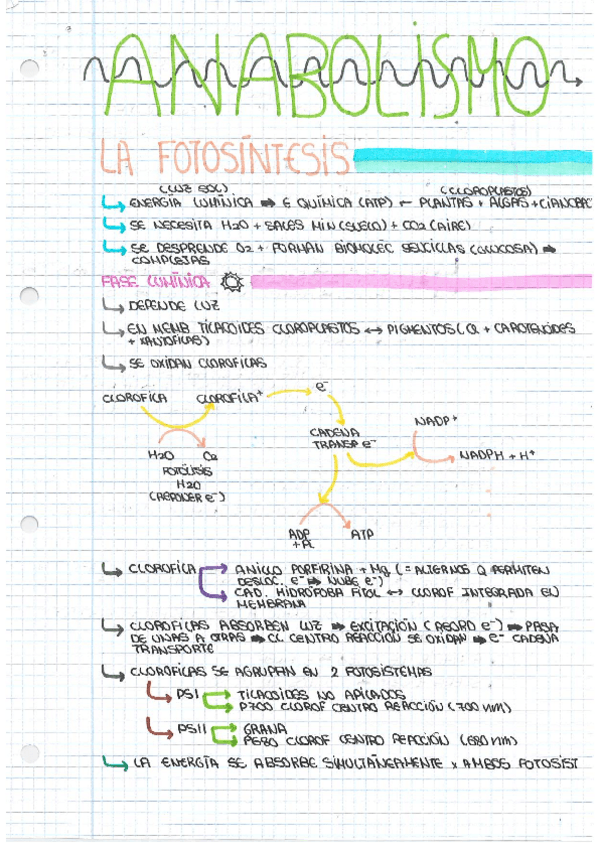 ANABOLISMO
LA FOTOSÍNTESIS
(LUZ SOL) (CLOROPLASTOS)
ENERGÍA LUMÍNICA ⇒ E QUÍMICA (ATP) ← PLANTAS + ALGAS + CIANOBAC
SE NECESITA H2O + SALES MIN (SUELO) + CO2 (AIRE)
SE DESPRENDE O2 + FORMAN BIOMOLÉC SENCILLAS (GLUCOSA) ⇒
COMPLEJAS
FASE LUMÍNICA
DEPENDE LUZ
EN MEMB. TILACOIDES CLOROPLASTOS ↔ PIGMENTOS (CL + CAROTENOIDES
+ XANTOFILAS)
SE OXIDAN CLOROFILAS
CLOROFILA CLOROFILA+ e-
NADP+
CADENA
TRANSP e-
H2O O2 NADPH + H+
FOTÓLISIS
H2O
(REPONER e-)
ADP ATP
+ Pi
CLOROFILA ANILLO PORFIRINA + Mg (= ALTERNOS Q PERMITEN
DESLOC. e- ⇒ NUBE e-)
CAD. HIDRÓFOBA FITOL ↔ CLOROF INTEGRADA EN
MEMBRANA
CLOROFILAS ABSORBEN LUZ ⇒ EXCITACIÓN (REORD e-) ⇒ PASA
DE UNAS A OTRAS ⇒ CL CENTRO REACCIÓN SE OXIDAN ⇒ e- CADENA
TRANSPORTE
CLOROFILAS SE AGRUPAN EN 2 FOTOSISTEMAS
PSI TILACOIDES NO APILADOS
P700 CLOROF CENTRO REACCIÓN (700 nm)
PSII GRANA
P680 CLOROF CENTRO REACCIÓN (680 nm)
LA ENERGÍA SE ABSORBE SIMULTÁNEAMENTE x AMBOS FOTOSIST